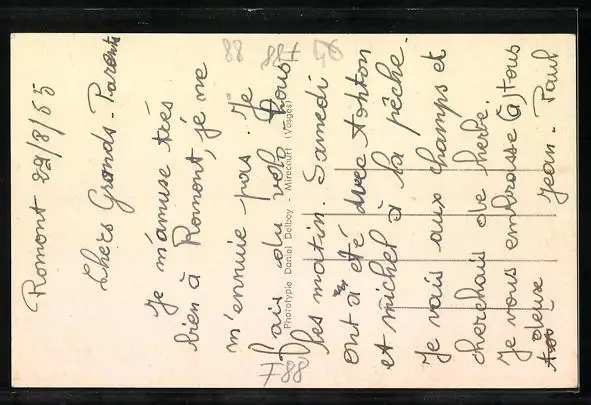 Romont 29/8/55
Chers Grands-Parents
Je m'amuse très
bien à Romont, je ne
m'ennuie pas. Je
fais du vélo tous
les matin. Samedi
ont a été avec
et michel à la pêche.
Je vais aux champs et
cherchais de herbe.
Je vous embrasse (à) tous
deux Jean-Paul
Phototypie Daniel Delboy - Mirecourt (Vosges)
88
F88
46
F88